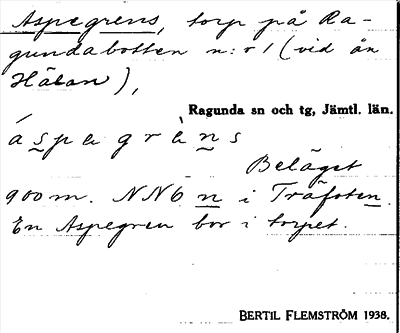 Aspegrens, torp på Ra-
gundabotten n:r 1 (vid ån
Hälan),
Ragunda sn och tg, Jämtl. län.
áspegrὲns
Beläget
900 m. NNÖ n i Träfoten.
En Aspegren bor i torpet.
BERTIL FLEMSTRÖM 1938.